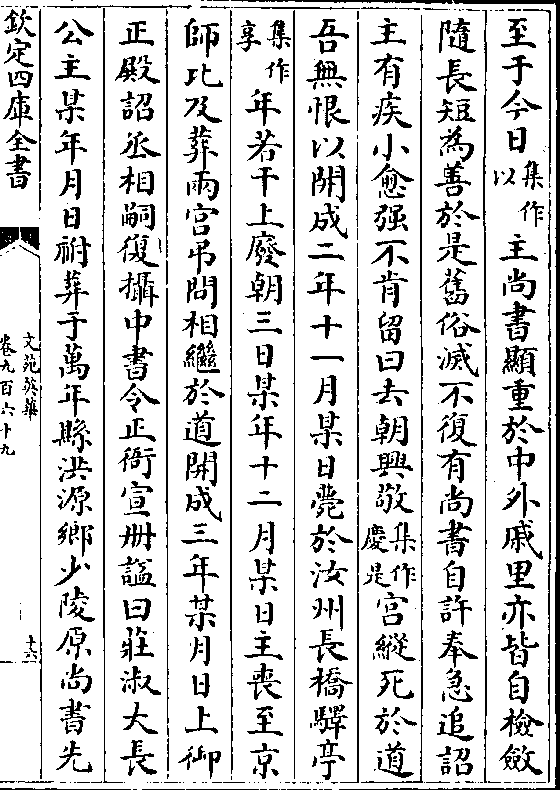 至于今日集作以主尚書顯重於中外戚里亦皆自檢斂
隨長短為善於是舊俗滅不復有尚書自許奉急追詔
主有疾小愈强不肯留曰去朝興敬集作慶是宫縱死於道
吾無恨以開成二年十一月某日薨於汝州長橋驛亭
集作享年若干上廢朝三日某年十二月某日主喪至京
師比及葬兩宫弔問相繼於道開成三年某月日上御
正殿詔丞相嗣復攝中書令正衙宣册諡曰莊淑大長
公主某年月日祔葬于萬年縣洪源鄉少陵原尚書先
欽定四庫全書
文苑英華
卷九百六十九
十六